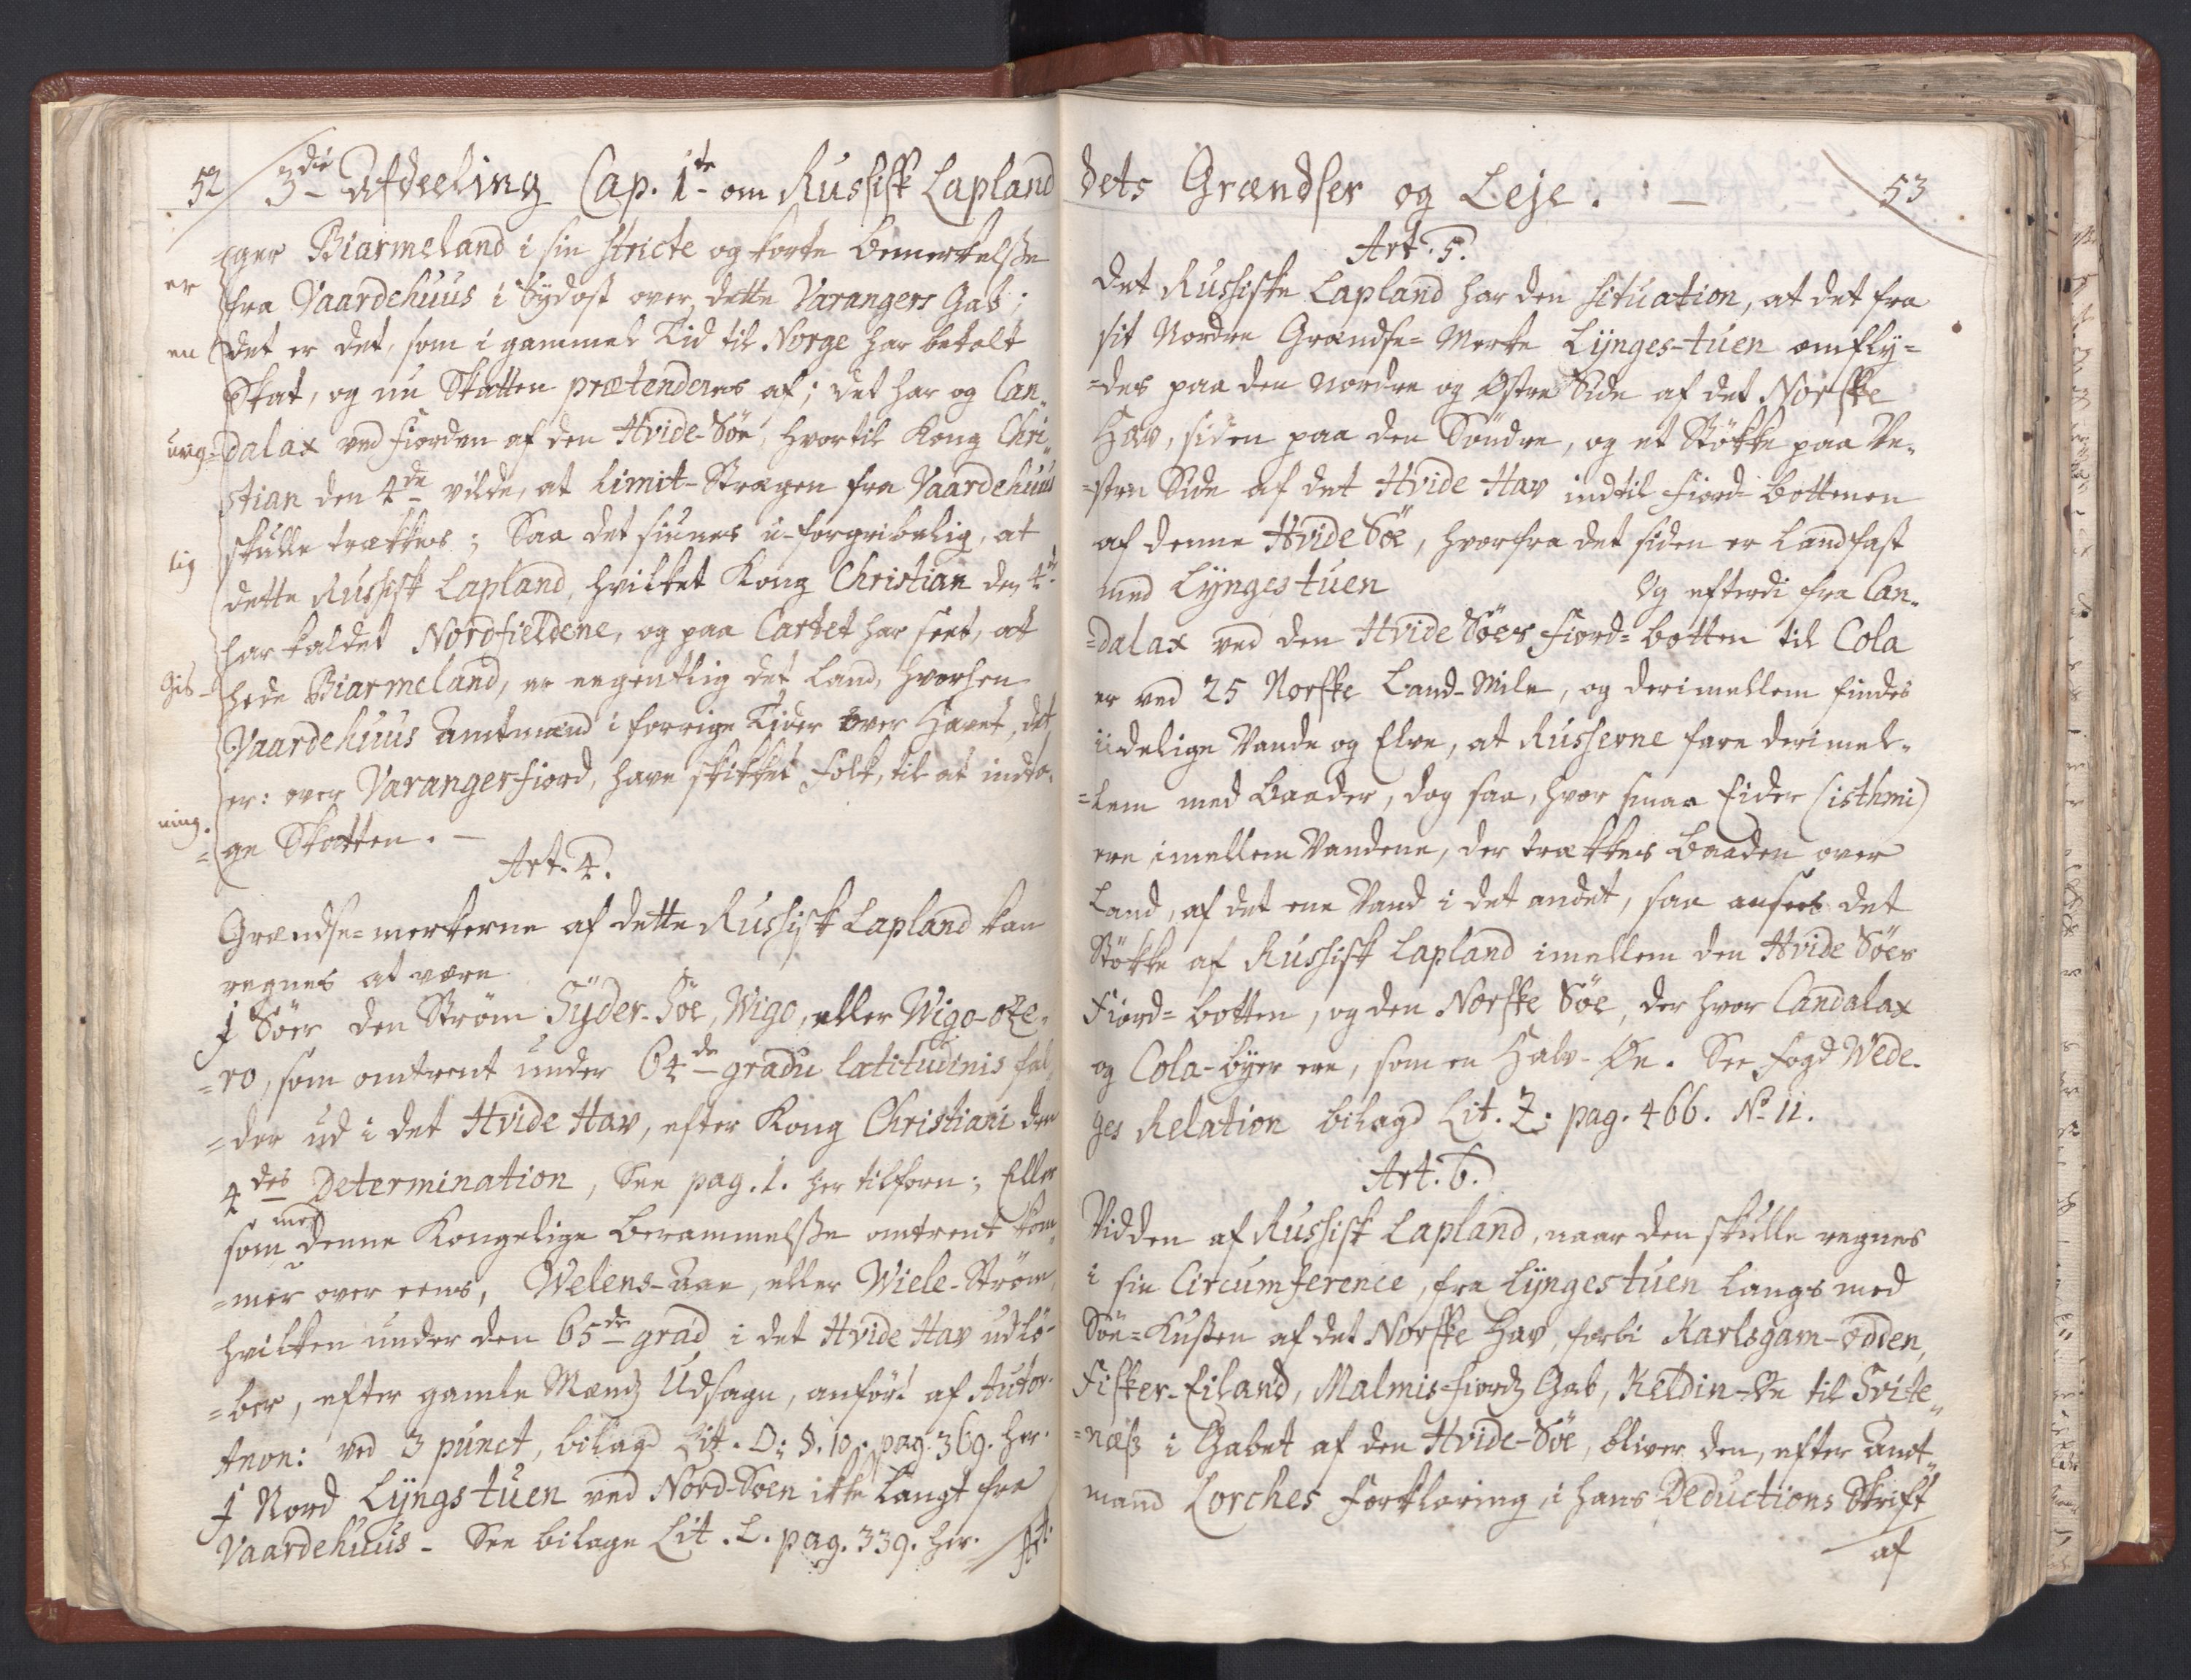 52 3die Afdeeling Cap. 1te om Russisk Lapland
=ger Biarmeland i sin stricte og korte bemerkelsse
er fra Vaardehuus i Sydost over dette Varangers Gab;
en det er det, som i gammel Tid til Norge har betalt
Skat, og nu Skatten prætenderes af; det har og Can„
dalax ved fiorden af den Hvide-Söe, hvortil Kong Chri„
stian den 4de vilde, at Limit-Strægen fra Vaardehuus
skulle trækkes; Saa det siunes u-forgribelig, at
tig dette Russisk Lapland, hvilket Kong Christian den 4de
har kaldet Nordfieldene, og paa Cartet har seet, at
hede Biarmeland, er eegentlig det Land, hvorhen
Vaardehuus Amtmænd i forrige Tider over Havet, det
er: over Varangerfiord, have skikket folk, til at indta„
ning. =ge Skatten. —
Art. 4.
Grændse=merkerne af dette Russisk Lapland kan
regnes at være
I Söer den Ström Syder-Söe, Wigo, eller Wigo-oze„
=ro, som omtrent under 64de gradu latitudinis fal„
=der ud i det Hvide Hav, efter Kong Christiani den
4des Determination, See pag. 1. her tilforn; Eller
med
som denne Kongelige berammelsse omtrent kom„
=mer over eens, Welens-Aae, eller Wiele-Ström,
hvilken under den 65de grad i det Hvide Hav udlö„
=ber, efter gamle Mænds Udsagn, anfört af Autor
Anon: ved 3 punct, bilagd Lit. O: §. 10. pag. 369. her.
I Nord Lyngstuen ved Nord-Soen ikke langt fra
Vaardehuus - See bilage Lit. L. pag. 339. her.
Art:
dets Grændser og Leje. — 53
Art. 5.
Det Russiske Lapland har den situation, at det fra
sit Nordre Grændse=Merke Lynges-tuen omfly=
=des paa den Nordre og Østre Side af det Norske
Hav, siden paa den Söndre, og et Stökke paa Ve„
=stre Side af det Hvide Hav indtil fiord-bottenen
af denne Hvide Söe, hvorfra det siden er Landfast
med Lyngestuen Og efterdi fra Can„
=dalax ved den Hvide Söes fiord=botten til Cola
er ved 25 Norske Land-Mile, og derimellem findes
idelige Vande og Elve, at Russerne fare derimel„
=lem med baader, dog saa, hvor smaa Eider (isthmi)
ere imellem Vandene, der trækkes baaden over
Land, af det ene Vand i det andet, saa ansees det
Stökke af Russisk Lapland imellem den Hvide Söes
Fiord=botten, og den Norske Söe, der hvor Candalax
og Cola-byer ere, som en Halv-Øe. See fogd Wede„
ges Relation bilagd Lit. Z: pag. 466. No 11.
Art. 6.
Vidden af Russisk Lapland, naar den skulle regnes
i sin Circumference, fra Lyngestuen langs med
Söe=Kusten af det Norske Hav, forbi Karlsgam-odden,
Fisker-Eiland, Malmis-fiords Gab, Keldin-Øe til Svite„
=næss i Gabet af den Hvide-Söe, bliver den, efter Amt„
mand Lorches forklaring, i hans Deductions Skrift
af